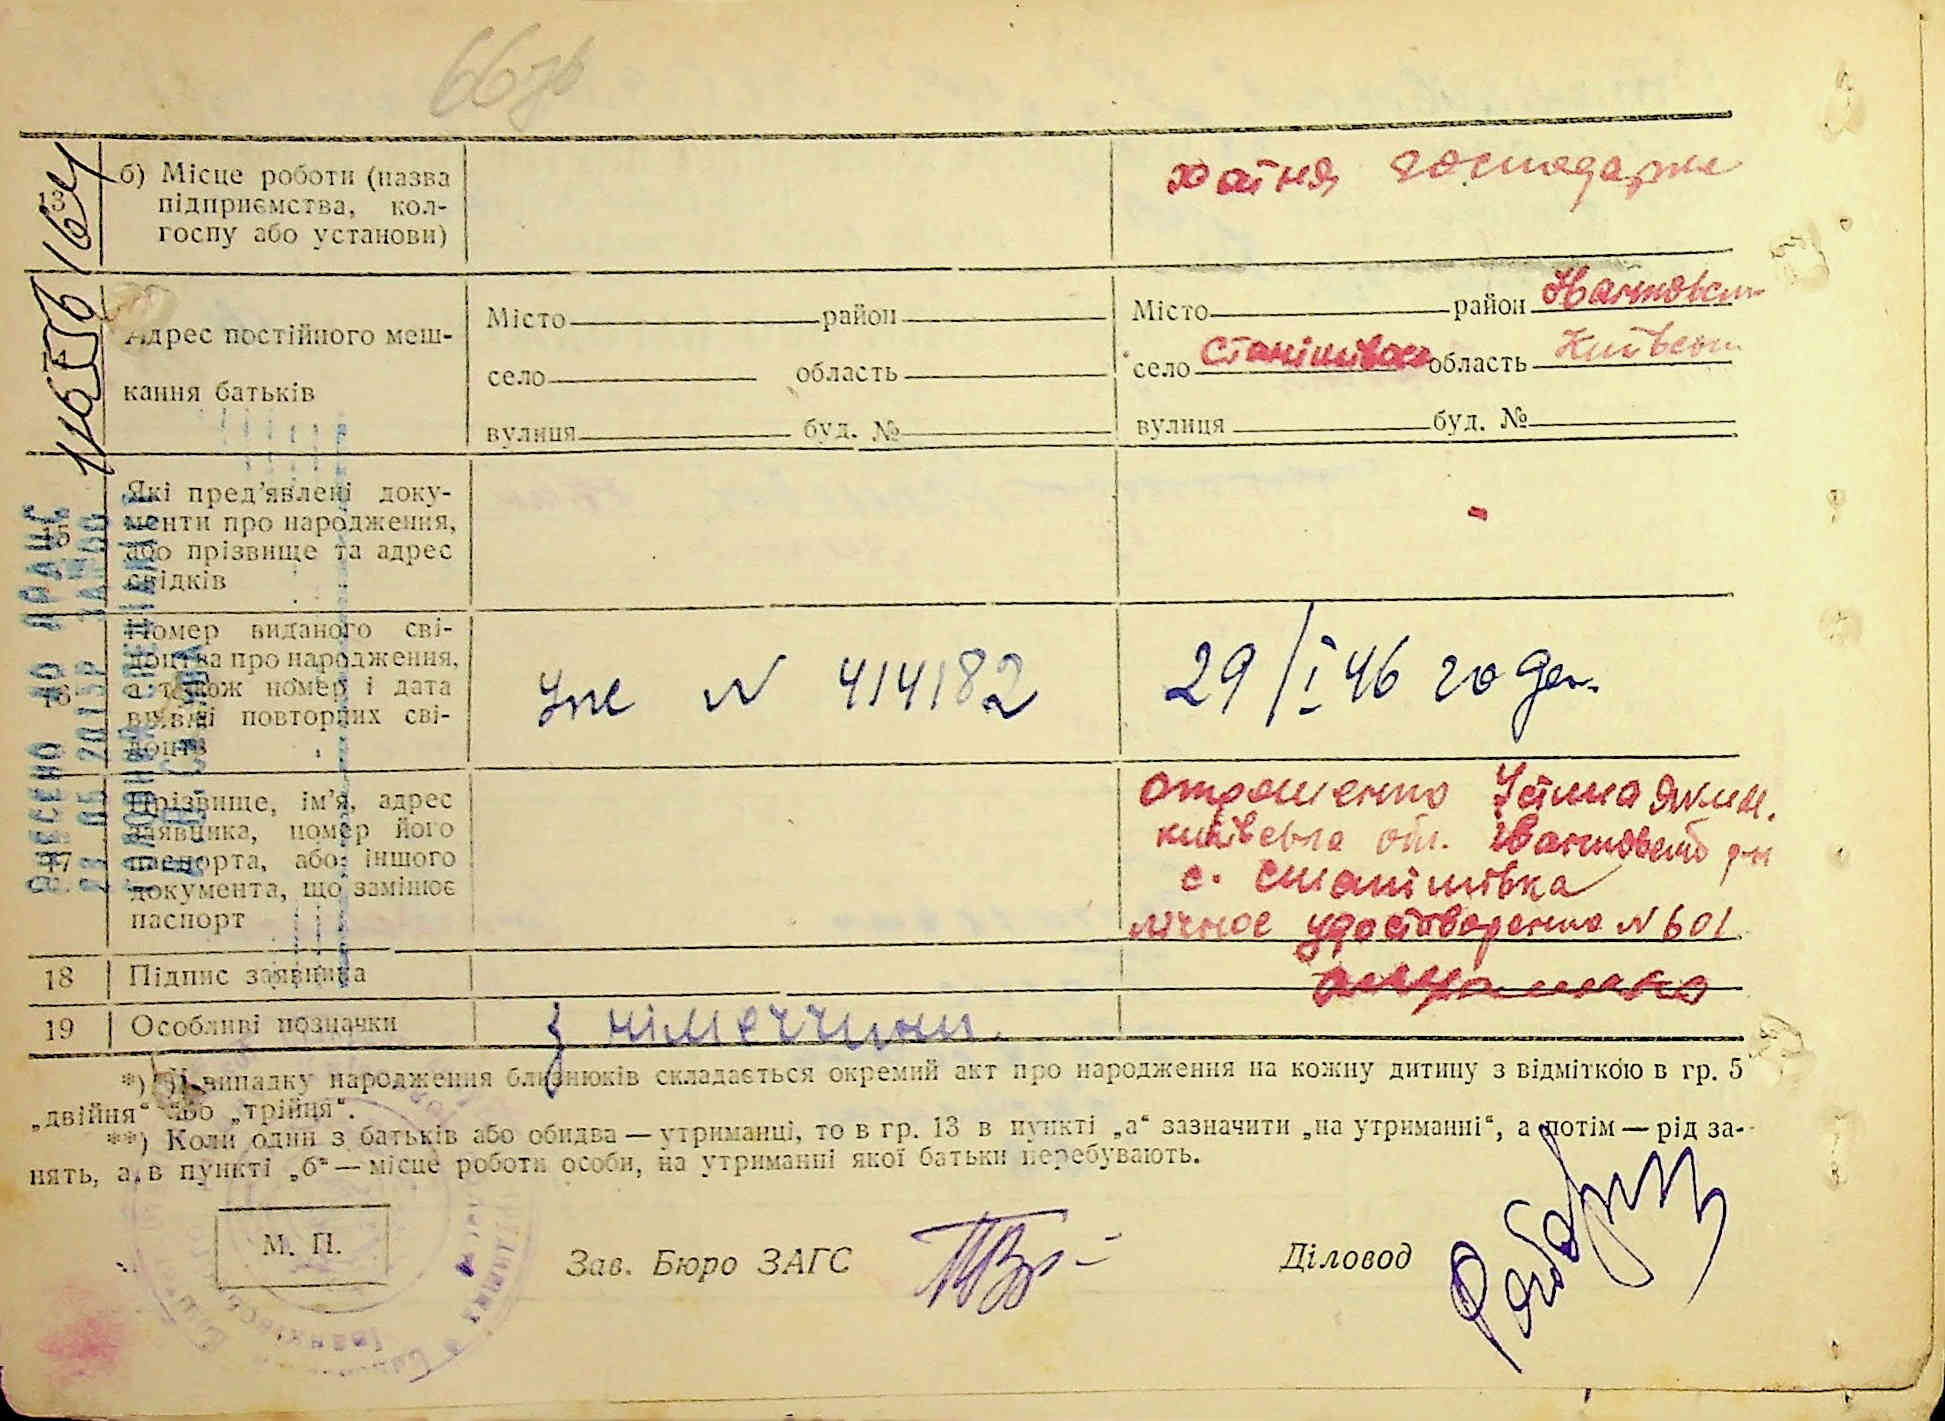 13
б) Місце роботи (назва
підприємства, кол-
госпу або установи)
хатня господарка
Адрес постійного меш-
кання батьків
Місто район
село область
вулиця буд. №
Місто район
село Станішівка область Київськ
вулиця буд. №
15
Які пред'явлені доку-
менти про народження,
або прізвище та адрес
свідків
-
16
Номер виданого сві-
доцтва про народження,
а також номер і дата
видачі повторних сві-
доцтв
N 414182
29/I 46 го
17
Прізвище, ім'я, адрес
заявника, номер його
паспорта, або іншого
документа, що замінює
паспорт
Устина Яким.
київська обл. р-н
с. Станішівка
лічное удостоверение N 601
18 Підпис заявника
19 Особливі позначки
з німеччини.
*) У випадку народження близнюків складається окремий акт про народження на кожну дитину з відміткою в гр. 5
„двійня“ або „трійня“.
**) Коли один з батьків або обидва — утриманці, то в гр. 13 в пункті „а“ зазначити „на утриманні“, а потім — рід за-
нять, а в пункті „б“ — місце роботи особи, на утриманні якої батьки перебувають.
М. П.
Зав. Бюро ЗАГС
Діловод